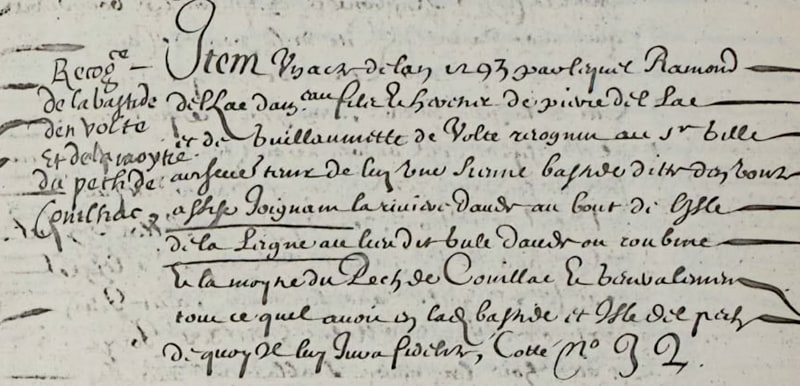 Recog.ce
de la bastide
den volte
Et de la moytie
du pech de
Couilhac
Item Un acte de lan 1293 par lequel Ramond
del Lac dam.eau filz & heretier de pierre del Lac
et de Guillaumette de Volte recognu au sr
de luy une sienne bastide ditte
assise Joignam la riviere daude au bout de lisle
de la Pigne au lieu dit daude ou roubine
& la moytie du Pech de Couillac &
tout ce quel avoit en lad bastide et Isle del pech
de quoy Il luy Jura fidelité, Cotté No 32.